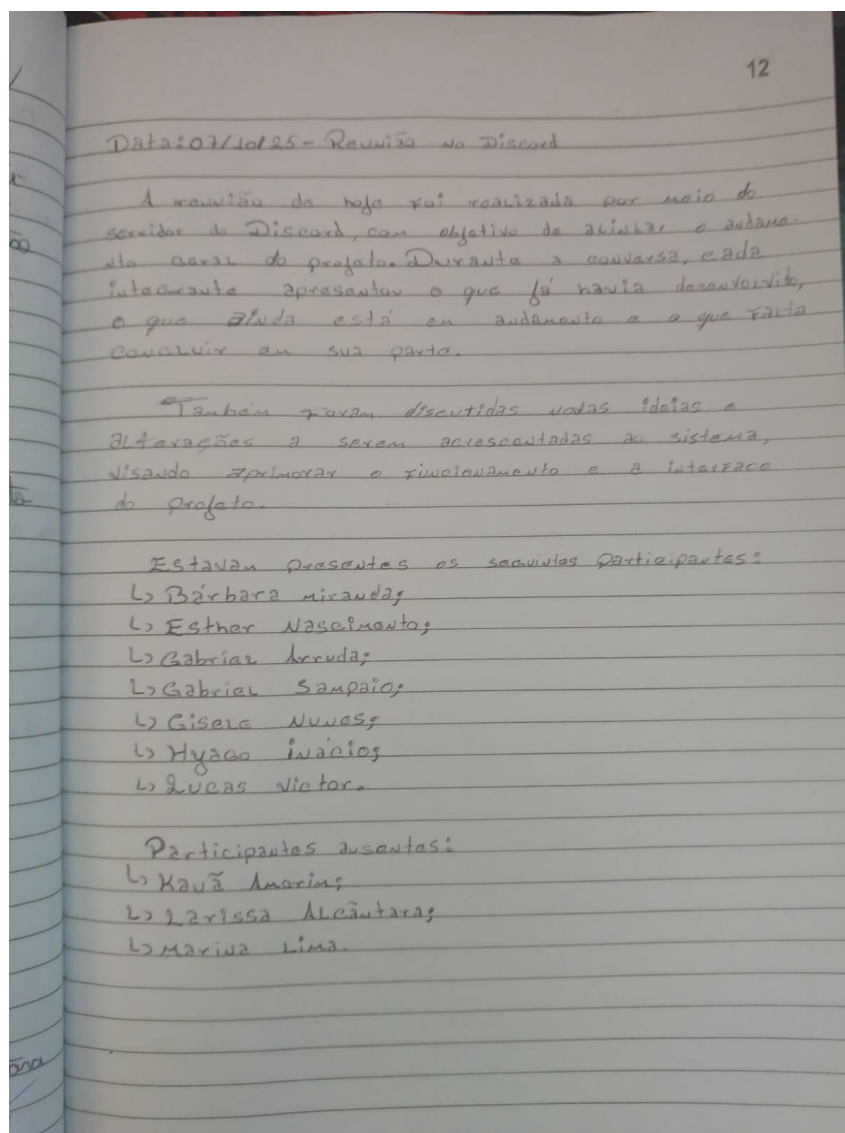 12
Data: 07/10/25 - Reunião no Discord
A reunião de hoje foi realizada por meio do
servidor do Discord, com objetivo de alinhar o andame-
nto geral do projeto. Durante a conversa, cada
integrante apresentou o que já havia desenvolvido,
o que ainda está em andamento e o que falta
concluir em sua parte.
Também foram discutidas novas ideias e
alterações a serem acrescentadas ao sistema,
visando aprimorar o funcionamento e a interface
do projeto.
Estavam presentes os seguintes participantes:
↳ Bárbara Miranda;
↳ Esther Nascimento;
↳ Gabriel Arruda;
↳ Gabriel Sampaio;
↳ Gisele Nunes;
↳ Hyago Inácio;
↳ Lucas Victor.
Participantes ausentes:
↳ Kauã Amorim;
↳ Larissa Alcântara;
↳ Marina Lima.